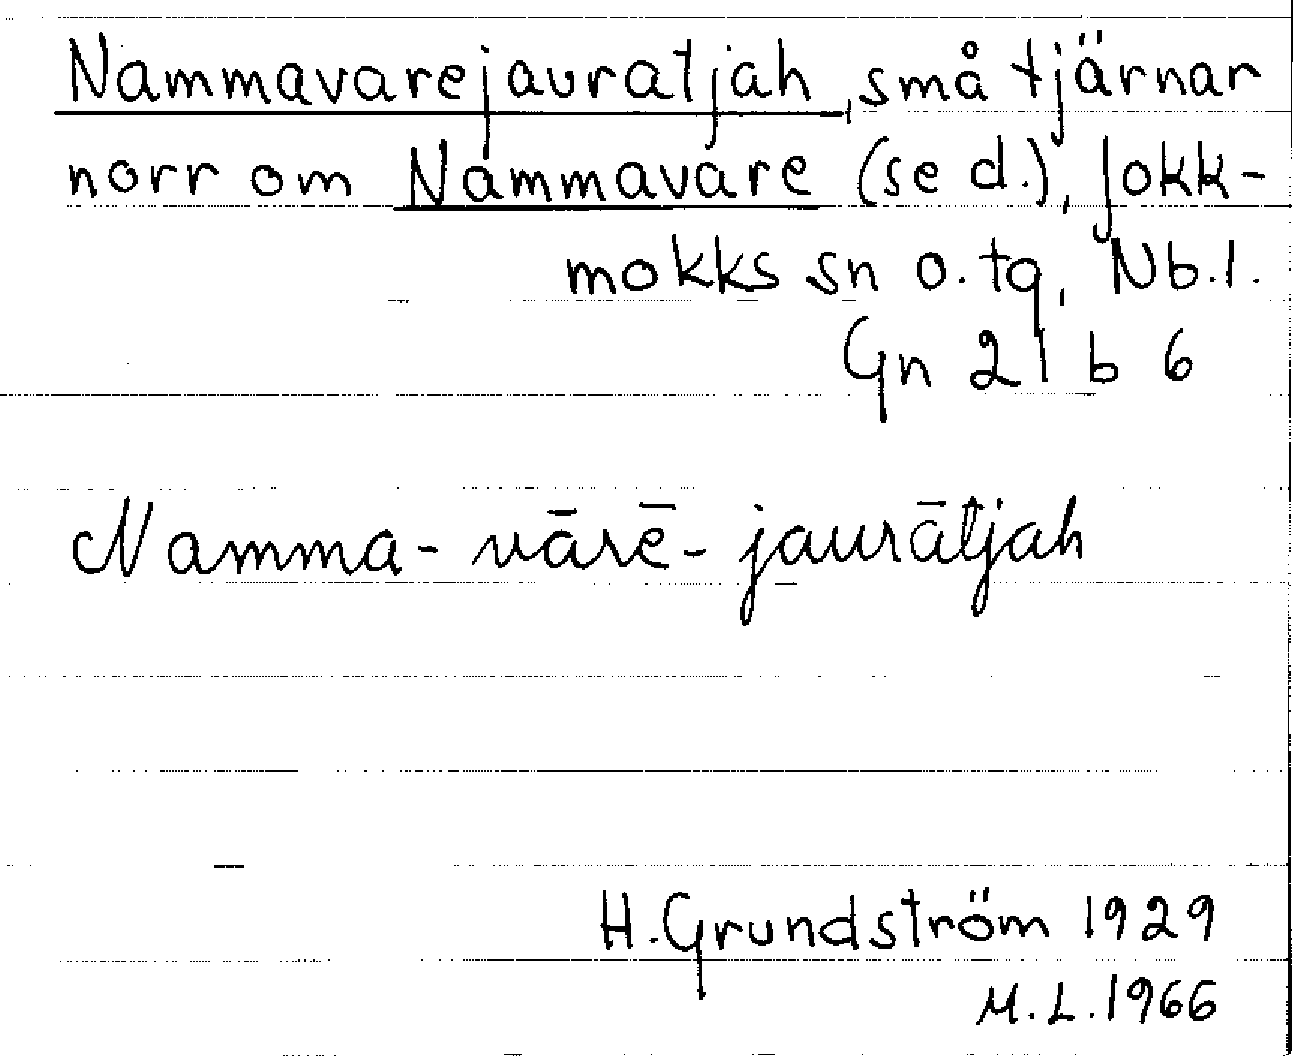 Nammavarejauratjah, små tjärnar
norr om Nammavare (se d.), Jokk-
mokks sn o. tg, Nb. l.
Gn 21 b 6
Namma-vārē-jaurātjah
H. Grundström 1929
M. L. 1966